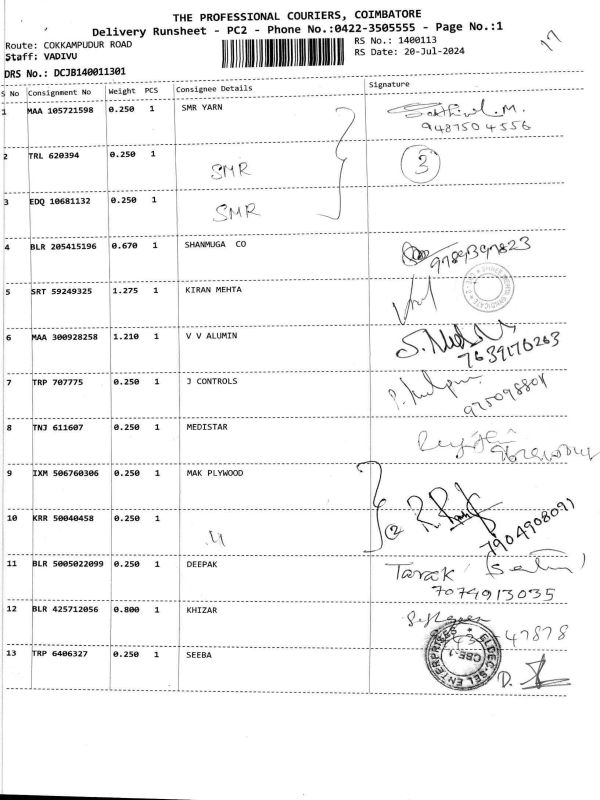 THE PROFESSIONAL COURIERS, COIMBATORE
Delivery Runsheet - PC2 - Phone No.:0422-3505555 - Page No.:1
Route: COKKAMPUDUR ROAD
RS No.: 1400113
17
Staff: VADIVU
RS Date: 20-Jul-2024
DRS No.: DCJB140011301
S No Consignment No Weight PCS Consignee Details Signature
1 MAA 105721598 0.250 1 SMR YARN
9487504556
2 TRL 620394 0.250 1 SMR 3
3 EDQ 10681132 0.250 1 SMR
4 BLR 205415196 0.670 1 SHANMUGA CO
5 SRT 59249325 1.275 1 KIRAN MEHTA
6 MAA 300928258 1.210 1 V V ALUMIN
7639170263
7 TRP 707775 0.250 1 J CONTROLS
8 TNJ 611607 0.250 1 MEDISTAR
9 IXM 506760306 0.250 1 MAK PLYWOOD
10 KRR 50040458 0.250 1 2
7904908091
11 BLR 5005022099 0.250 1 DEEPAK Tarak
7074913035
12 BLR 425712056 0.800 1 KHIZAR
47878
13 TRP 6406327 0.250 1 SEEBA
ELDEC-SEL ENTERPRISES
CBE-1
D.